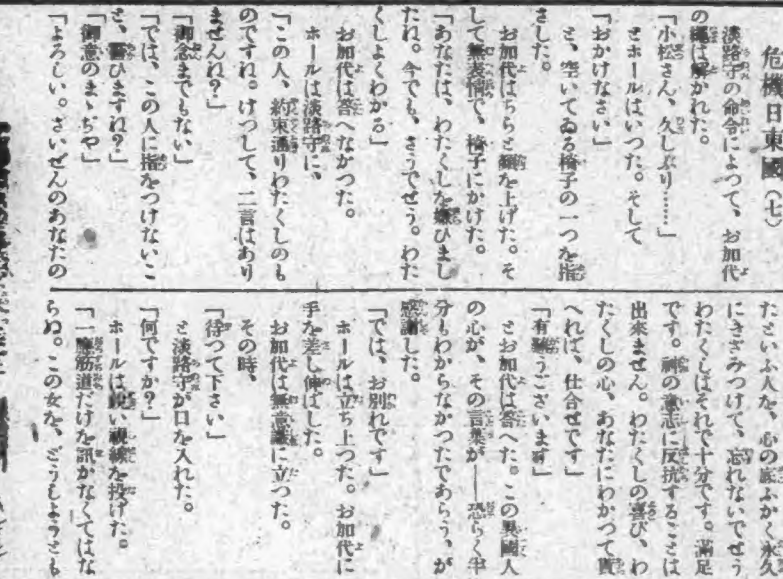 危機日東國(七)
淡路守の命令によつて、お加代
の繩は解かれた。
「小松さん、久しぶり……」
とホールはいつた。そして
「おかけなさい」
と、空いてゐる椅子の一つを指
さした。
お加代はちらと顏を上げた。そ
して無表情で、椅子にかけた。
「あなたは、わたくしを嫌ひまし
たね。今でも、さうでせう。わた
くしよくわかる」
お加代は答へなかつた。
ホールは淡路守に、
「この人、約束通りわたくしのも
のですね。けつして、二言はあり
ませんね?」
「御念までもない」
「では、この人に指をつけないこ
と、誓ひますね?」
「御意のまゝぢや」
「よろしい。さいぜんのあなたの
たといふ人を、心の底ふかく永久
にきざみつけて、忘れないでせう
わたくしはそれで十分です。滿足
です。神の意志に反抗することは
出來ません。わたくしの喜び、わ
たくしの心、あなたにわかつて貰
へれば、仕合せです」
「有難うございます」
とお加代は答へた。この異國人
の心が、その言葉が――恐らく半
分もわからなかつたであらう、が
感謝した。
「では、お別れです」
ホールは立ち上つた。お加代に
手を差し伸ばした。
お加代は無意識に立つた。
その時、
「待つて下さい」
と淡路守が口を入れた。
「何ですか?」
ホールは鋭い視線を投げた。
「一應筋道だけを訊かなくてはな
らぬ。この女を、どうしようとも